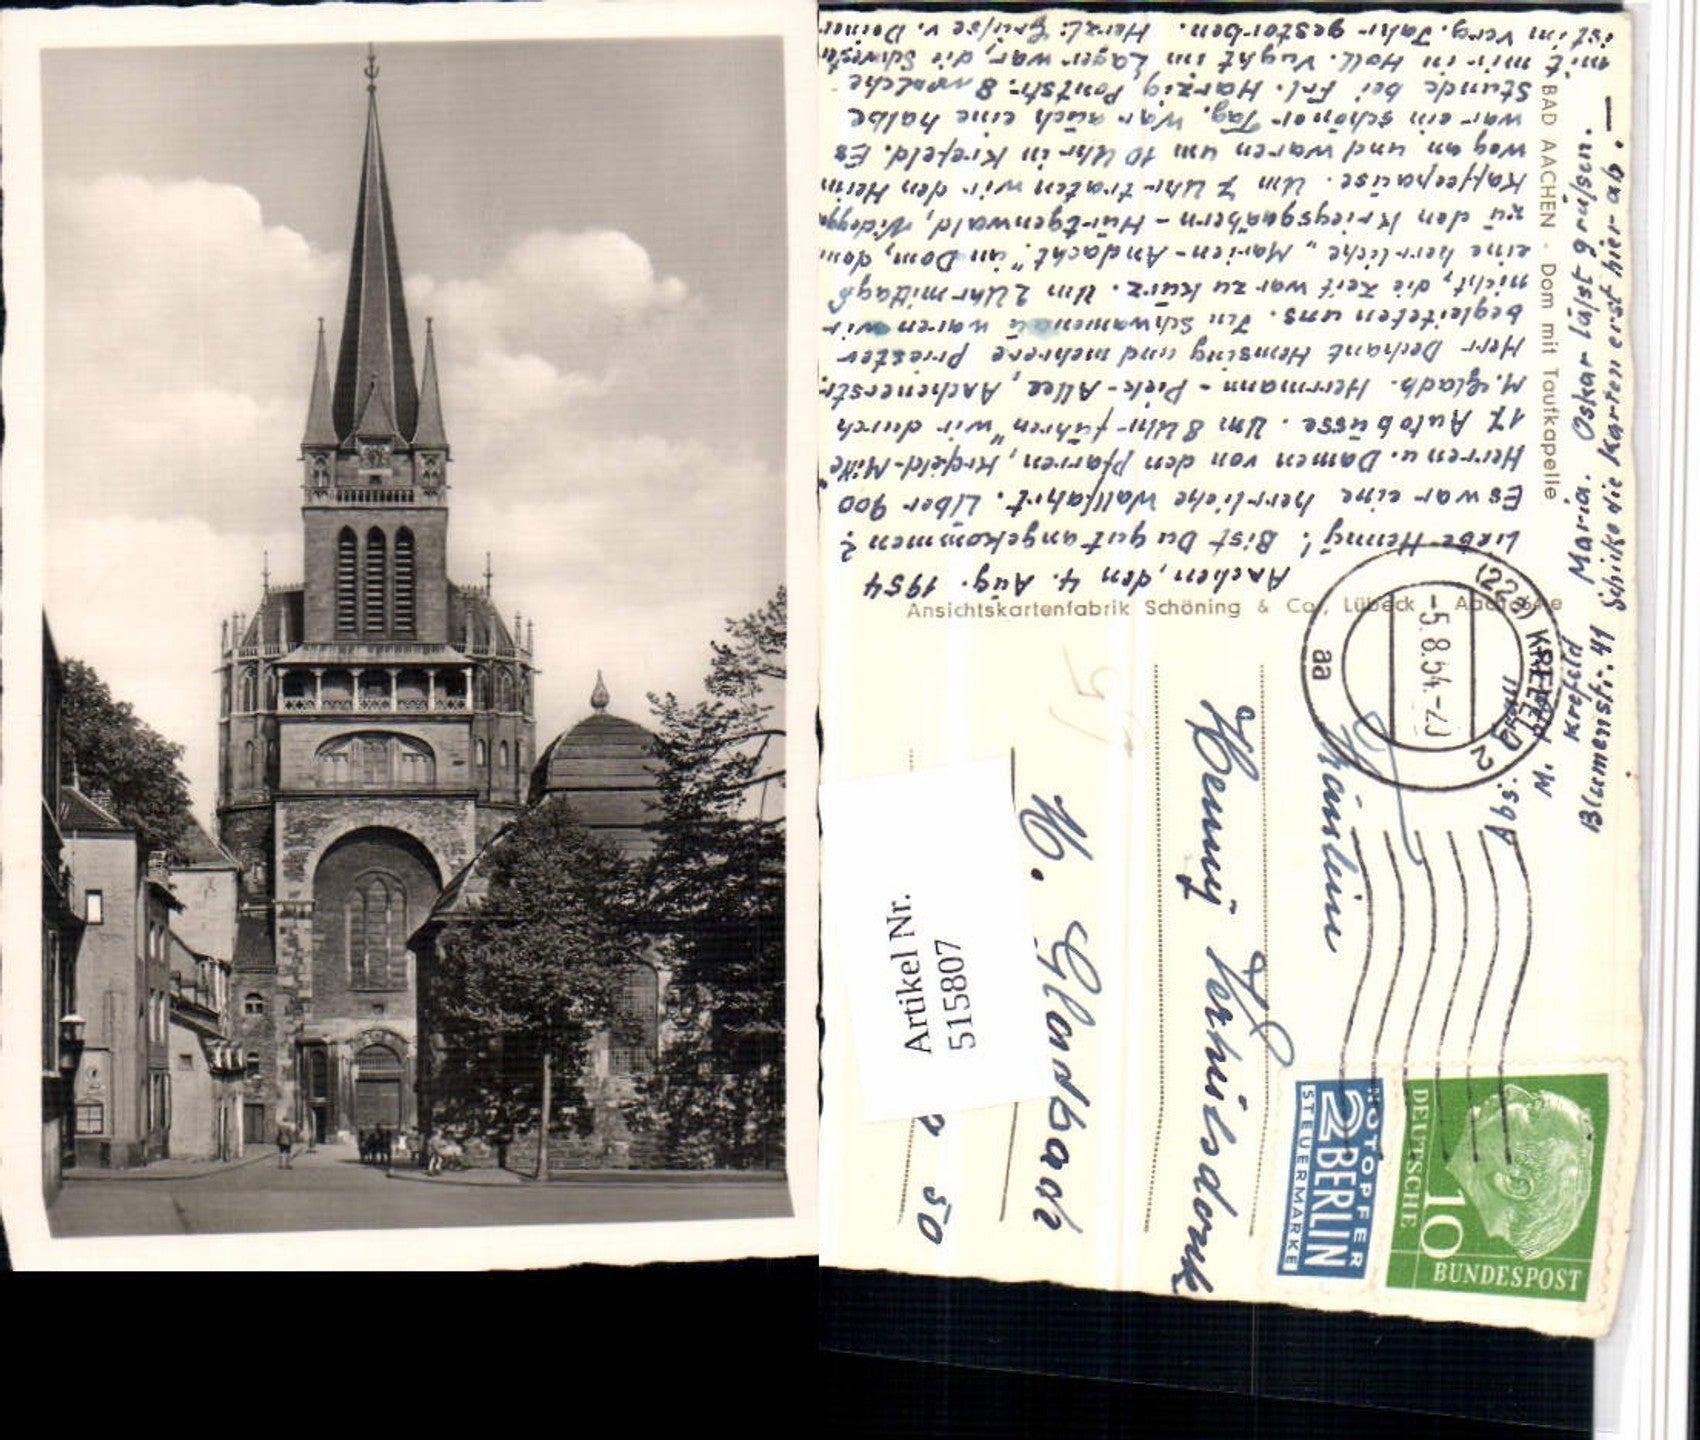 Aachen, den 4. Aug. 1954
Liebe Henny! Bist Du gut angekommen?
Es war eine herrliche Wallfahrt. Über 900
Herren u. Damen von den Pfarren, Krefeld-Mitte
17 Autobüsse. Um 8 Uhr führen wir durch
M. Gladb. Herrmann-Piek-Allee, Aachenerstr.
Herr Dechant Hemsing und mehrere Priester
begleiteten uns. In waren wir
nicht, die Zeit war zu kurz. Um 2 Uhr mittags
eine herrliche „Marien-Andacht" im Dom, dann
zu den Kriegsgräbern-Hürtgenwald,
Kaffeepause. Um 7 Uhr traten wir den Heim
weg an und waren um 10 Uhr in Krefeld. Es
war ein schöner Tag. War auch eine halbe
Stunde bei Frl. Harzig Pontstr. 8 welche
mit mir in Holl. Vught im Lager war, die Schwester
ist im verg. Jahr gestorben. Herzl. Grüsse v. Deiner
Maria. Oskar lässt grüssen.
Schicke die Karten erst hier ab.
BAD AACHEN · Dom mit Taufkapelle
Ansichtskartenfabrik Schöning & Co., Lübeck
(22a) KREFELD 2
-5.8.54.-
aa
Abs.
Krefeld
Blumenstr. 41
Fräulein
Henny
M. Gladbach
50
Artikel Nr.
515807
NOTOPFER
2 BERLIN
STEUERMARKE
DEUTSCHE
10
BUNDESPOST